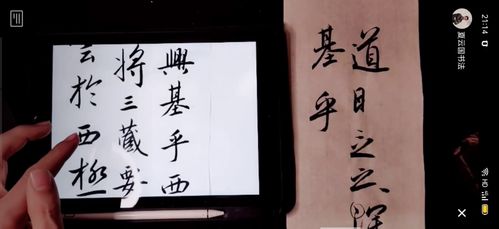 興基乎西
將三藏要
於西極
道日
基乎
21:14
夏云国书法
HD